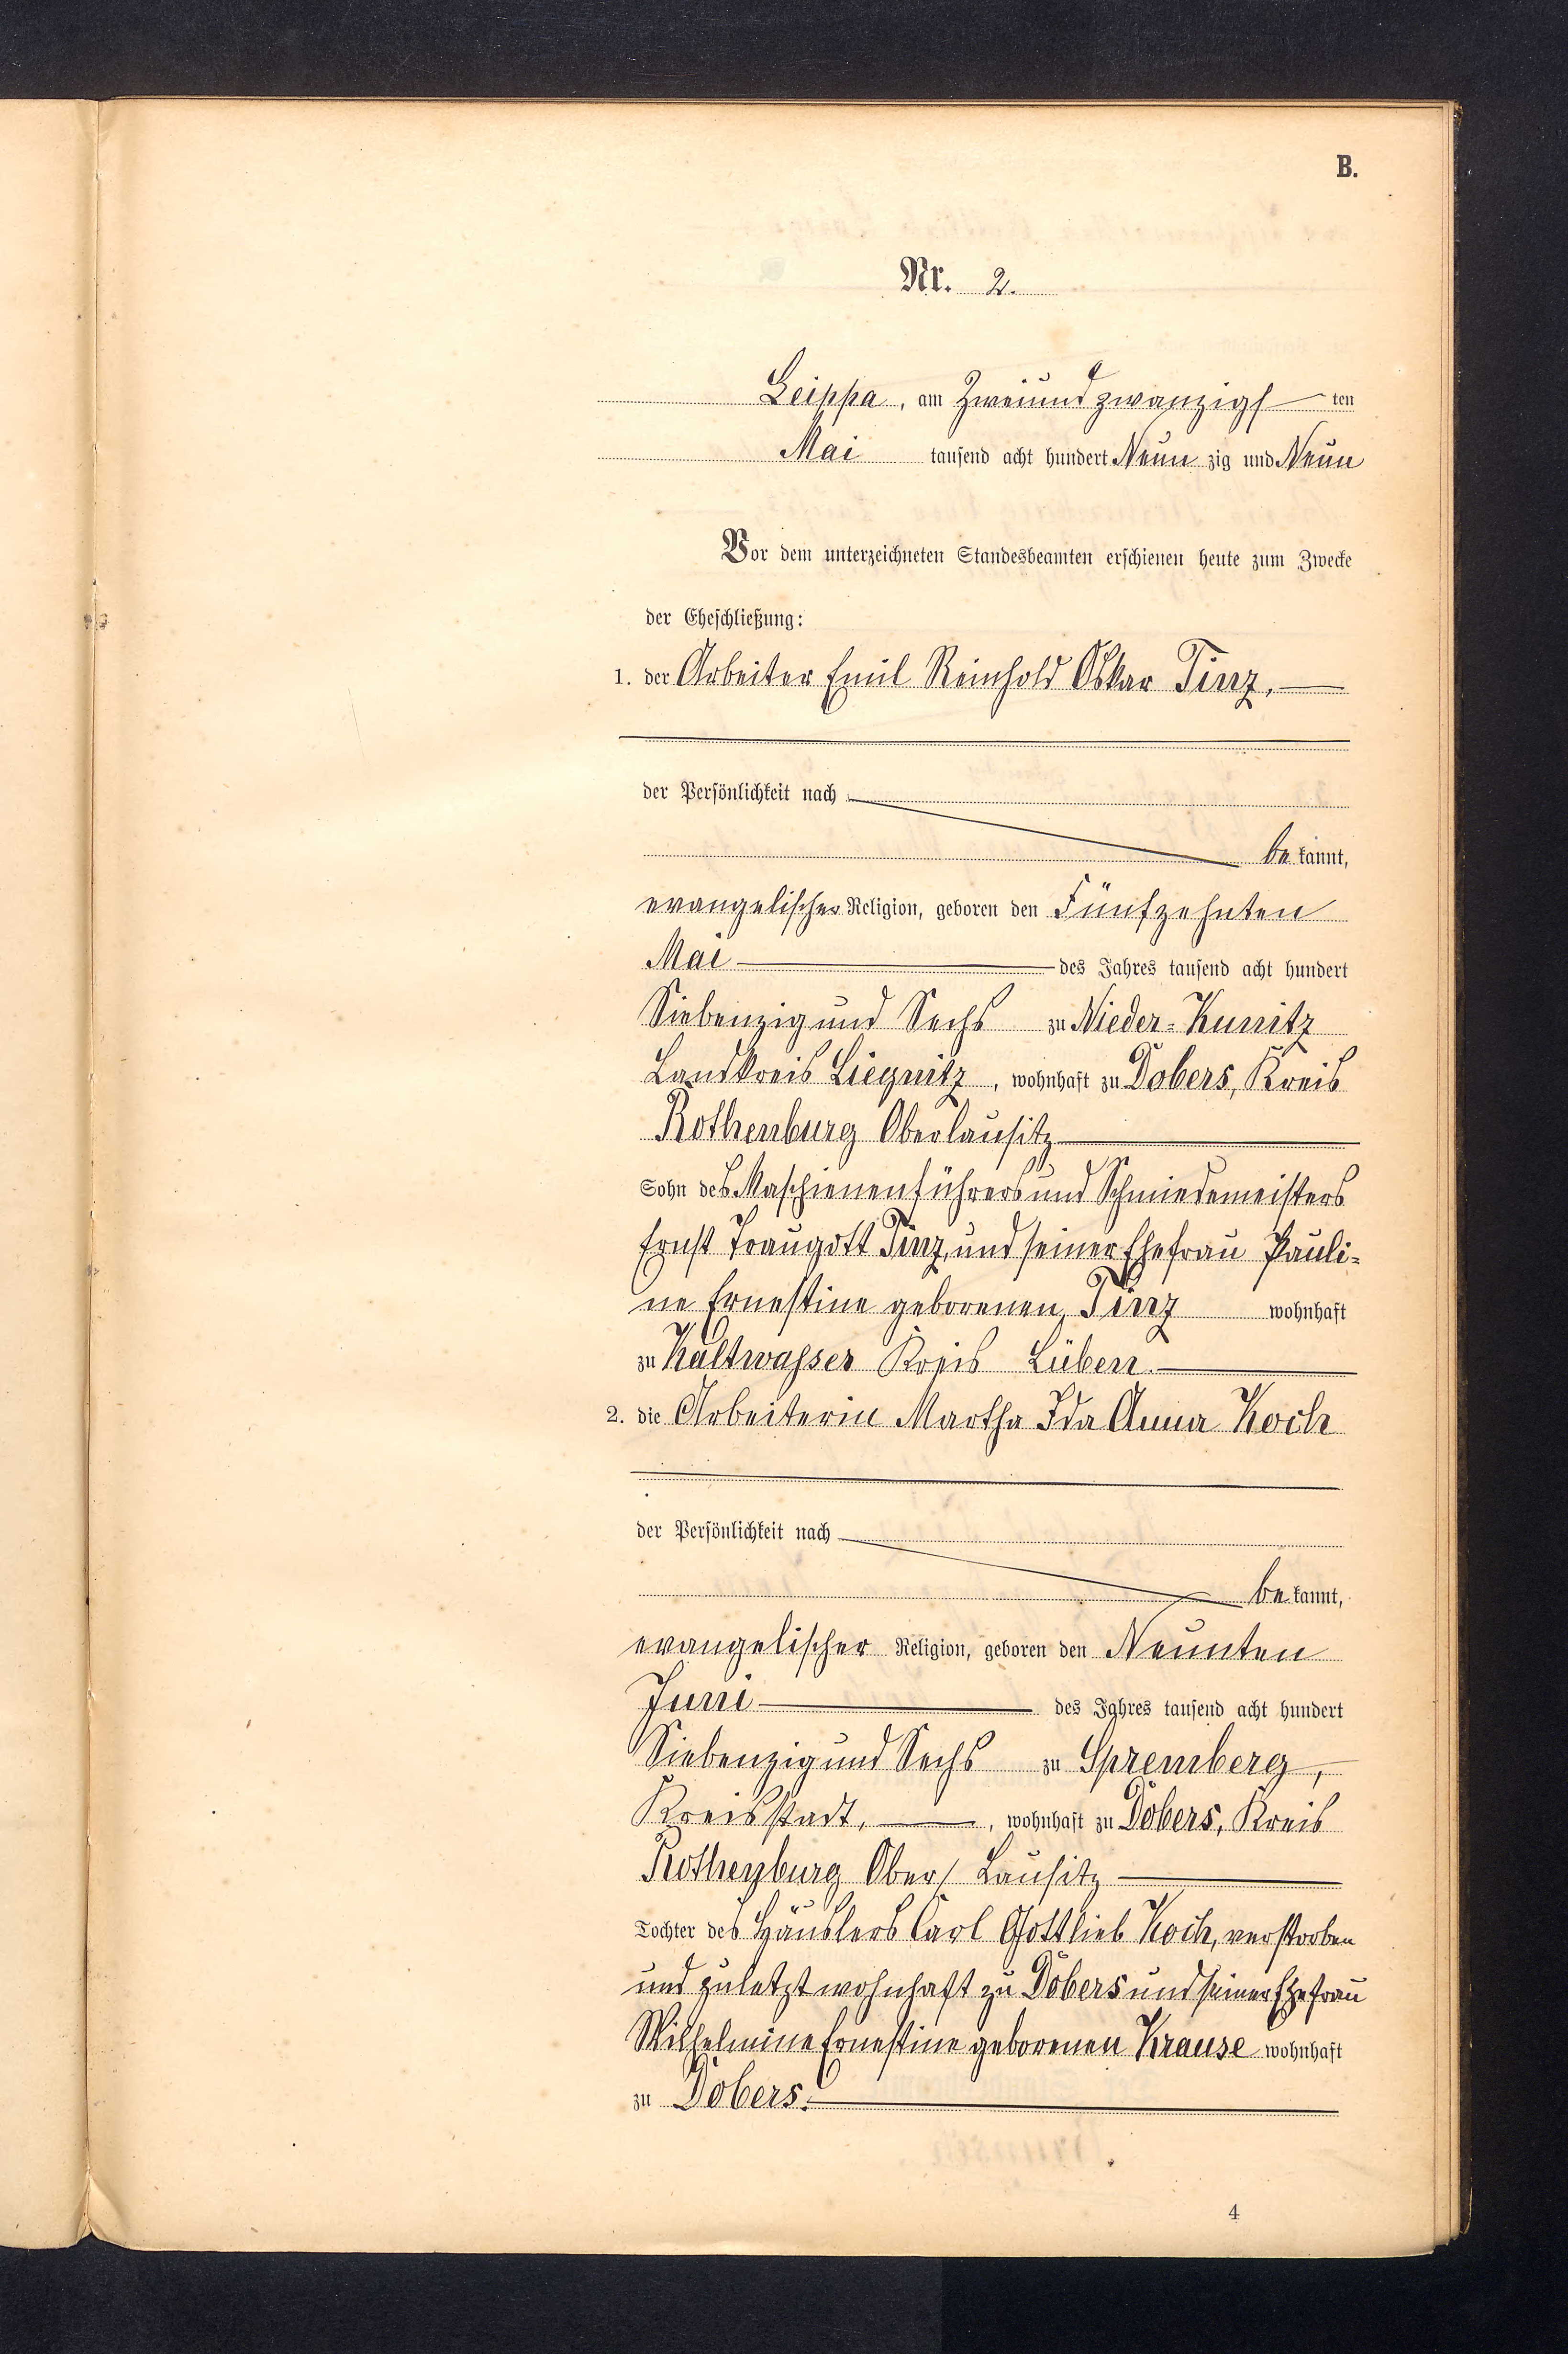 B.
Nr. 2.
Leippa, am Zweiundzwanzigsten
Mai tausend acht hundert Neunzig und Neun
Vor dem unterzeichneten Standesbeamten erschienen heute zum Zwecke
der Eheschließung:
1. der Arbeiter Emil Reinhold Oskar Tinz,
der Persönlichkeit nach
bekannt,
evangelischer Religion, geboren den Fünfzehnten
Mai des Jahres tausend acht hundert
Siebenzig und Sechs zu Nieder-Kunitz
Landkreis Liegnitz, wohnhaft zu Dobers, Kreis
Rothenburg Oberlausitz
Sohn des Maschienenführers und Schmiedemeisters
Ernst Traugott Tinz, und seiner Ehefrau Pauli-
ne Ernestine geborenen Tinz wohnhaft
zu Kaltwasser Kreis Lüben.
2. die Arbeiterin Martha Ida Anna Koch
der Persönlichkeit nach
bekannt,
evangelischer Religion, geboren den Neunten
Juni des Jahres tausend acht hundert
Siebenzig und Sechs zu Spremberg,
Kreisstadt, , wohnhaft zu Dobers, Kreis
Rothenburg Ober/ Lausitz
Tochter des Häuslers Carl Gottlieb Koch, verstorben
und zuletzt wohnhaft zu Dobers und seiner Ehefrau
Wilhelmine Ernestine geborenen Krause wohnhaft
zu Dobers.
4